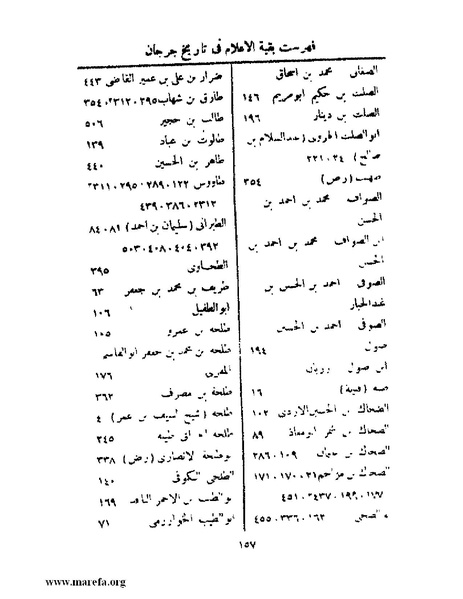 فهرست بقية الاعلام فى تاريخ جرجان
الصفانى محمد بن اسحاق
الصلت بن حكيم ابو مريم ١٤٦
الصلت بن دينار ١٩٦
ابو الصلت الهروى (عبد السلام بن
صالح) ٢٢١٠٢٤
صهيب (رض) ٣٥٤
الصواف محمد بن احمد بن
الحسن
ابن الصواف محمد بن احمد بن
الحسن
الصوفى احمد بن الحسن بن
عبد الجبار
الصوفى احمد بن الحسين
صول ١٩٤
ابن صول
ضبه (قبيلة) ١٦
الضحاك بن الحسين الازدى ١٠٢
الضحاك بن ابو معاذ ٨٩
الضحاك بن ٢٨٦٠١٠٩
الضحاك بن مزاحم ١٧١٠١٧٠٠٢١
٤٥١٠٢٤٣٧
٤٥٥٠٣٣٦٠١٦٢
ضرار بن على بن عمير القاضى ٤٤٣
طارق بن شهاب ٣٥٤٠٢٣١٢٠٢٩٥
طالب بن حجير ٥٠٦
طالوت بن عباد ١٣٩
طاهر بن الحسين ٤٤٠
طاووس ٢٣١١٠٢٩٥٠٢٨٩٠١٢٢
٤٣٩٠٣٨٦٠٢٣١٢
الطبرانى (سليمان بن احمد) ٨٤٠٨١
٥٠٣٠٤٠٨٠٤٠٤٠٣٩٢
الطحاوى ٣٩٥
طريف بن محمد بن جعفر ٦٣
ابو الطفيل ١٠٦
طلحه بن عمرو ١٠٥
طلحه بن محمد بن جعفر ابو القاسم
المقرى ١٧٦
طلحة بن مصرف ٣٦٢
طلحه (شيخ لسيف بن عمر) ٤
طلحه ابى طيبه ٢٤٥
ابو طلحة الانصارى (رض) ٣٣٨
الطلحى الكوفى ١٤٠
ابو الطيب بن الاحمر ١٦٩
ابو الطيب الخوارزمى ٧١
١٥٧
www.marefa.org